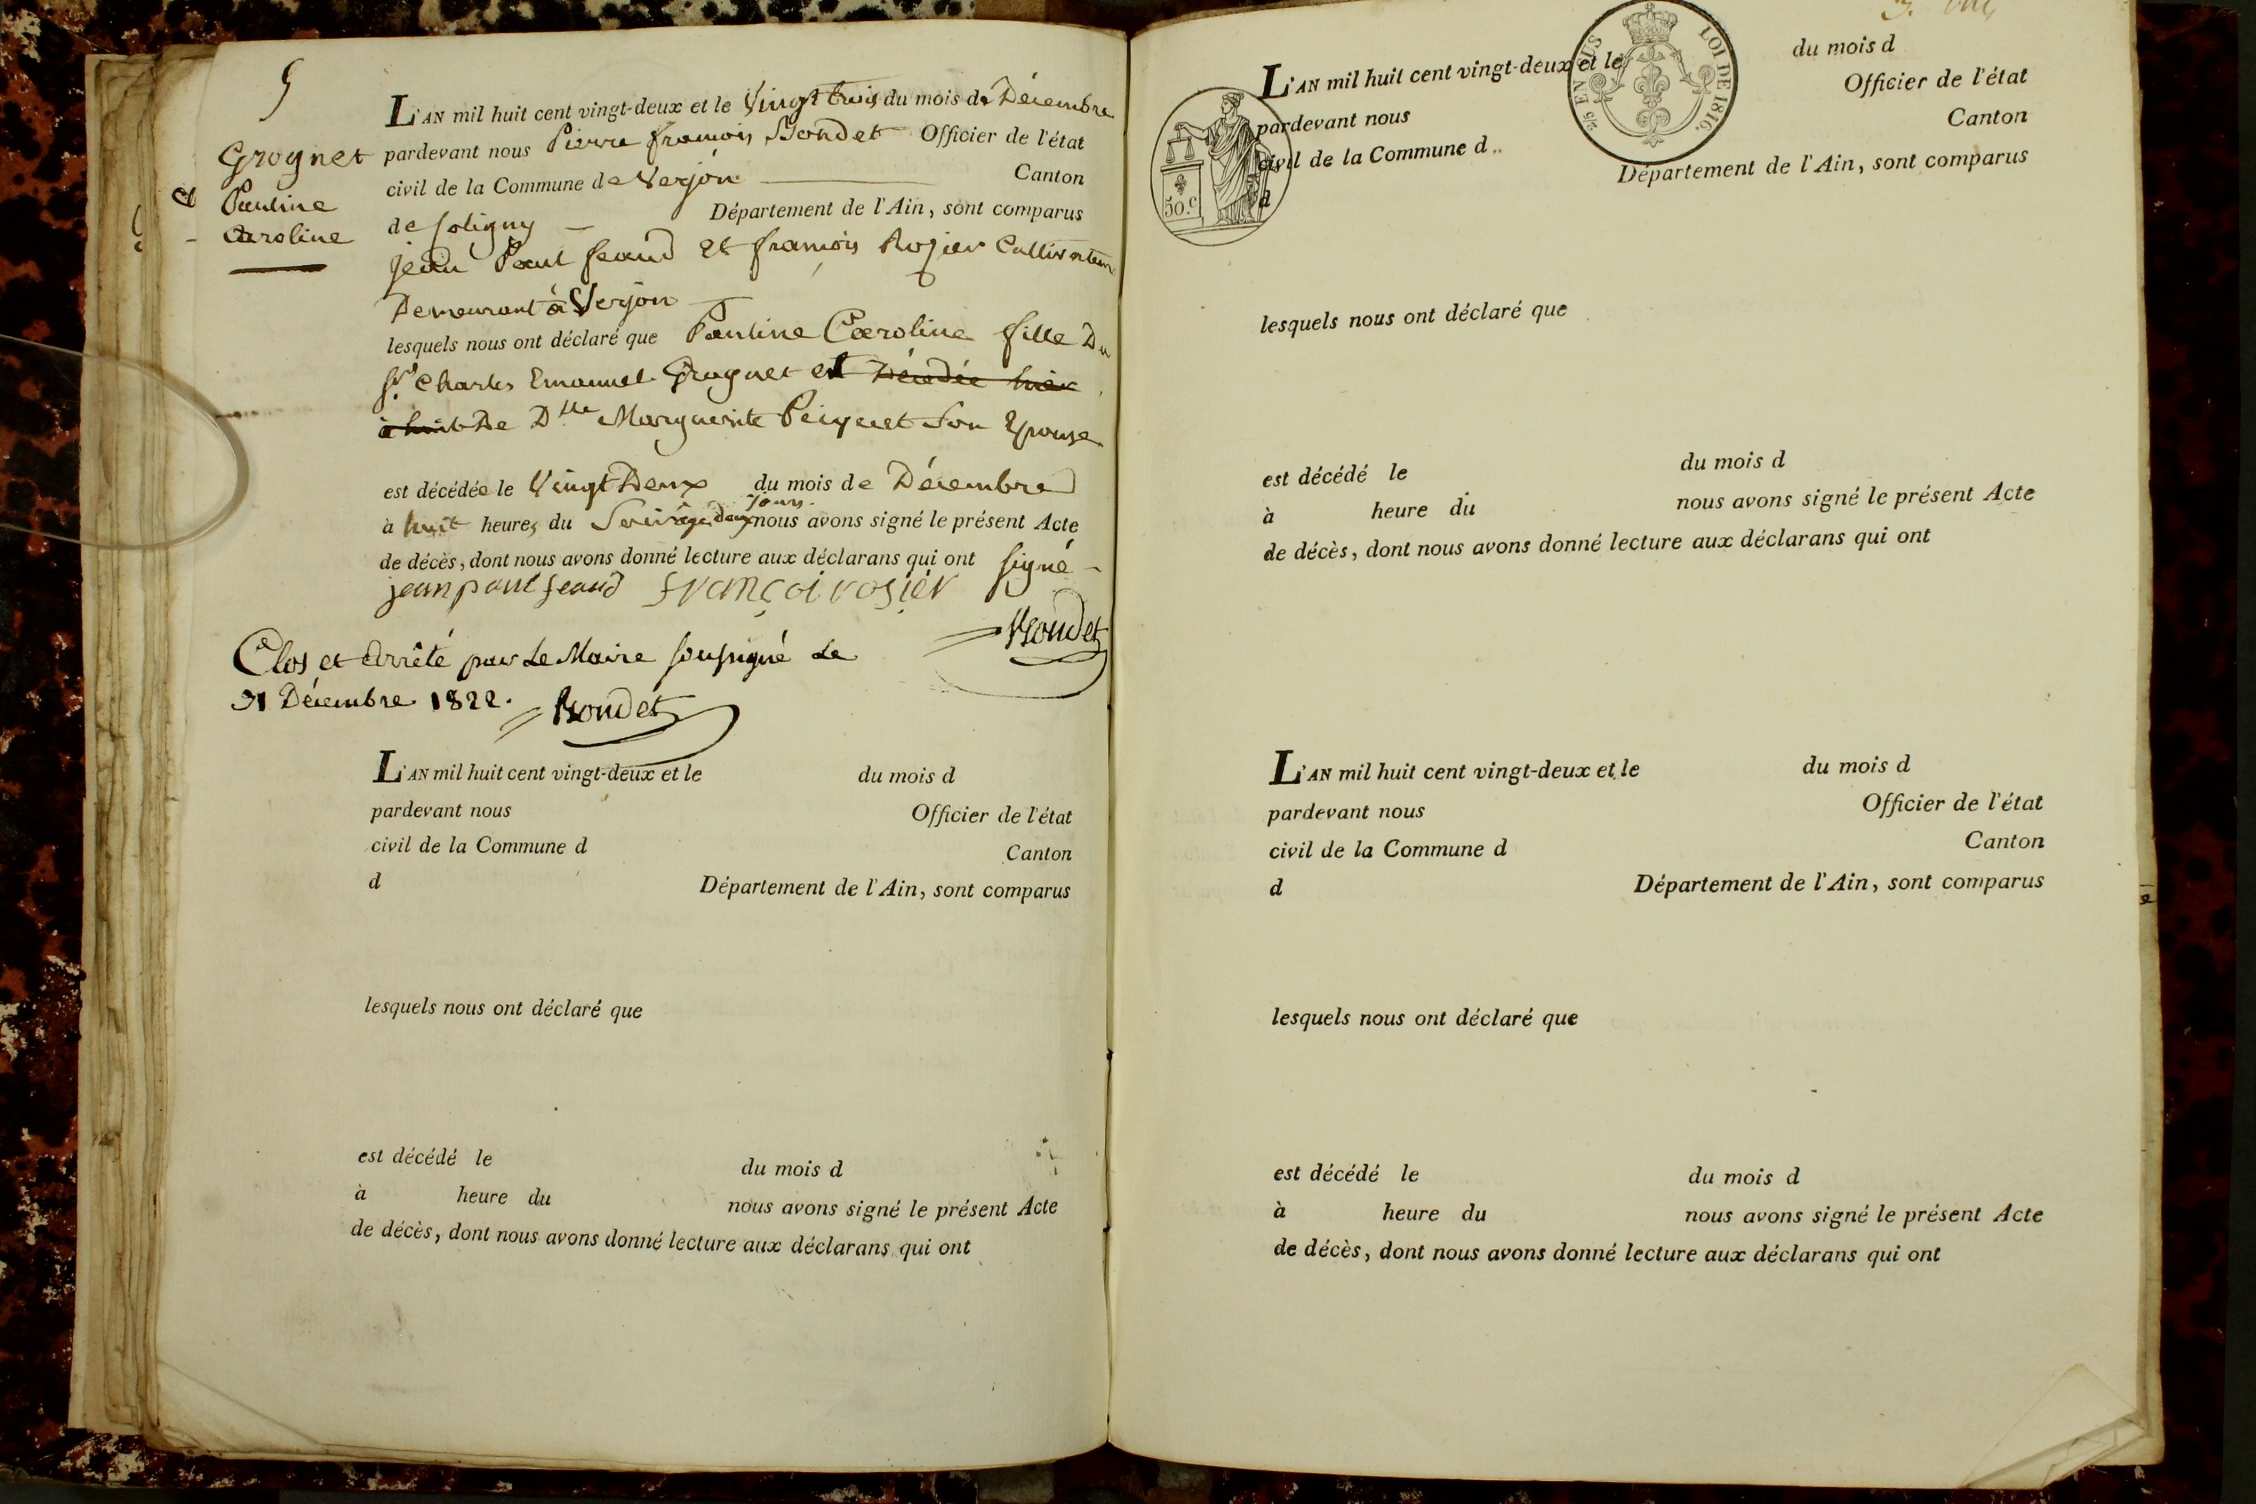 9
Grognet
Pauline
Caroline
L'AN mil huit cent vingt-deux et le Vingt trois du mois de Décembre
pardevant nous Pierre françois Rondet Officier de l'état
civil de la Commune de Verjon Canton
de Coligny Département de l'Ain, sont comparus
jean Paul feaud et françois Rozier Cultivateurs
Demeurant à Verjon
lesquels nous ont déclaré que Pauline Caroline fille Du
Sr Charles Emanuel Grognet et Décédée hier
à huit De Dlle Marguerite Son Epouse
est décédée le Vingt Deux du mois de Décembre
jours
à huit heures du Soir âgé deux nous avons signé le présent Acte
de décès, dont nous avons donné lecture aux déclarans qui ont signé
jean paul feaud françoi rosier
Rondet
Clos et Arrêté par Le Maire soussigné Le
31 Décembre 1822. Rondet
L'AN mil huit cent vingt-deux et le du mois d
pardevant nous Officier de l'état
civil de la Commune d Canton
d Département de l'Ain, sont comparus
lesquels nous ont déclaré que
est décédé le du mois d
à heure du nous avons signé le présent Acte
de décès, dont nous avons donné lecture aux déclarans qui ont
2/5 EN SUS LOI DE 1816.
50.c
L'AN mil huit cent vingt-deux et le du mois d
pardevant nous Officier de l'état
civil de la Commune d Canton
d Département de l'Ain, sont comparus
lesquels nous ont déclaré que
est décédé le du mois d
à heure du nous avons signé le présent Acte
de décès, dont nous avons donné lecture aux déclarans qui ont
L'AN mil huit cent vingt-deux et le du mois d
pardevant nous Officier de l'état
civil de la Commune d Canton
d Département de l'Ain, sont comparus
lesquels nous ont déclaré que
est décédé le du mois d
à heure du nous avons signé le présent Acte
de décès, dont nous avons donné lecture aux déclarans qui ont